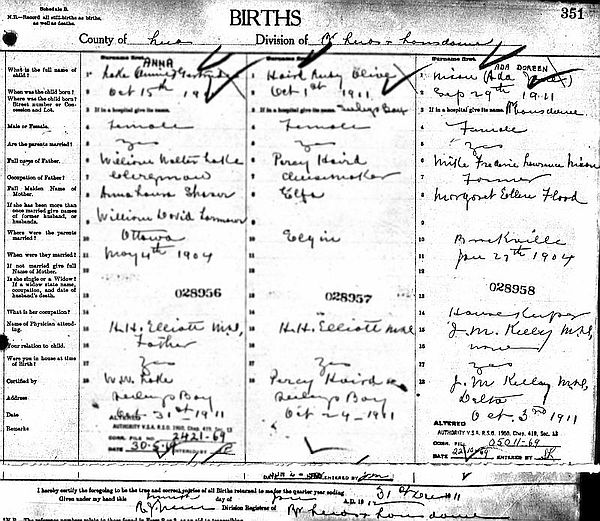 Schedule B.
N.B.—Record all still-births as births, as well as deaths.
BIRTHS
351
County of Leeds Division of Leeds + Lansdowne
Surname first.
Surname first.
Surname first.
What is the full name of child?
ANNA
Lake
Haird Ruby Olive
ADA DOREEN
(Ada
When was the child born?
Oct 15th 19
Oct 1st 1911
Sep 29th 1911
Where was the child born? Street number or Concession and Lot.
If in a hospital give its name.
If in a hospital give its name. Seeleys Bay
If in a hospital give its name. Lansdowne
Male or Female.
Female
Female
Female
Are the parents married?
yes
yes
yes
Full name of Father.
William Walter Lake
Percy Haird
Frederic Lawrence
Occupation of Father?
Clergyman
Cheesemaker
Farmer
Full Maiden Name of Mother.
Anna Laura
Elfa
Margaret Ellen Flood
If she has been more than once married give names of former husband, or husbands.
William David
Where were the parents married?
Ottawa
Elgin
Brockville
When were they married?
May 4th 1904
27th 1904
If not married give full Name of Mother.
Is she single or a Widow? If a widow state name, occupation, and date of husband's death.
028956
028957
028958
What is her occupation?
House Keeper
Name of Physician attending.
H.H. Elliott M.D.
H.H. Elliott M.D.
J. M. Kelly M.D.
Your relation to child.
Father
none
Were you in house at time of Birth?
yes
yes
yes
Certified by
W.W. Lake
Percy Haird
J. M Kelly M.D.
Address
Seeleys Bay
Seeleys Bay
Delta
Date
Oct 31st 1911
Oct 24 1911
Oct. 3rd 1911
Remarks
ALTERED
AUTHORITY V.S.A. R.S.O. 1960, Chap. 419, Sec. 13
CORR. FILE NO 2421-69
DATE 30-5- ENTERED BY
ALTERED
AUTHORITY V.S.A. R.S.O. 1960, Chap. 419, Sec.
CORR. FILE 05011-69
DATE 22-12-69 ENTERED BY
ENTERED BY
I hereby certify the foregoing to be the true and correct entries of all Births returned to me for the quarter year ending 31st Dec 1911
Given under my hand this day of A.D. 19
Division Registrar of Leeds + Lansdowne